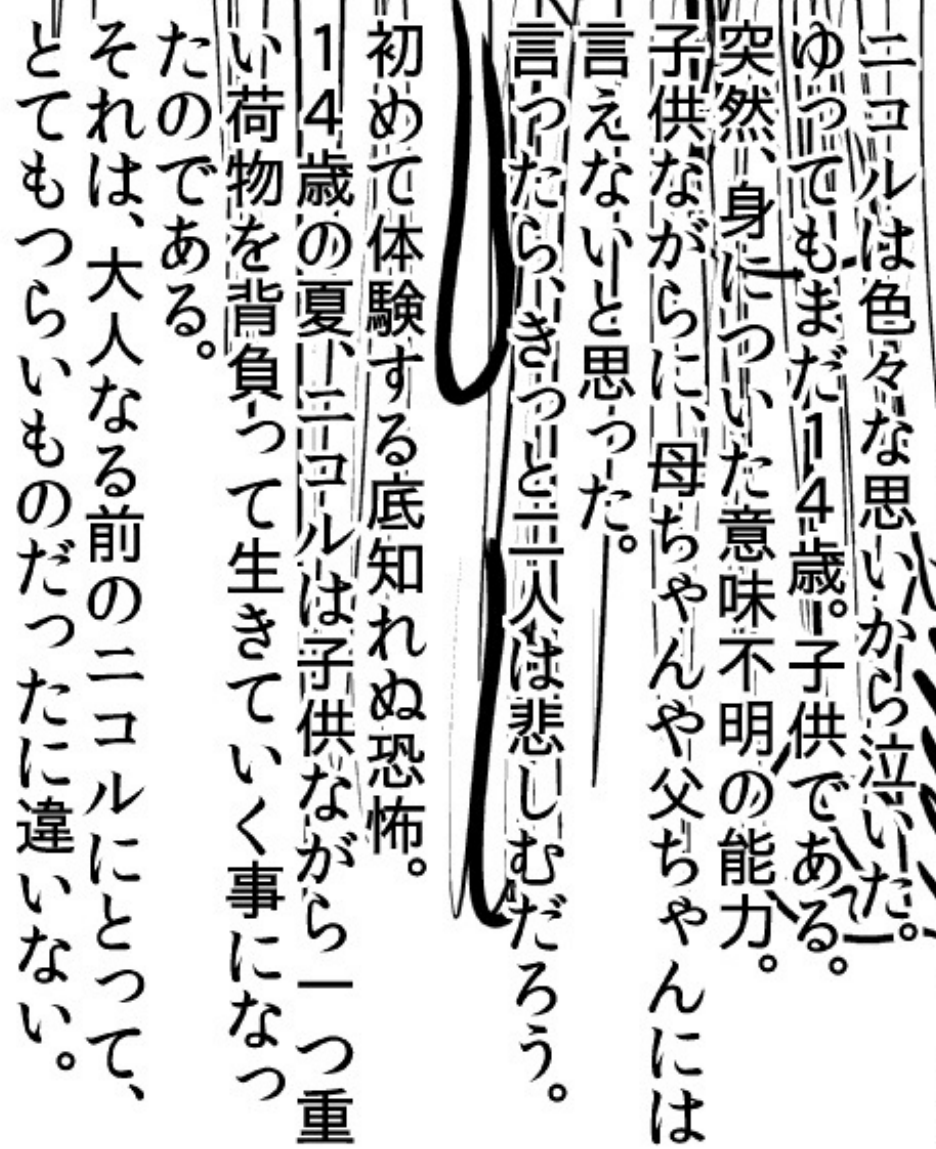 ニコルは色々な思いから泣いた。
ゆってもまだ14歳。子供である。
突然、身についた意味不明の能力。
子供ながらに、母ちゃんや父ちゃんには
言えないと思った。
言ったら、きっと二人は悲しむだろう。
初めて体験する底知れぬ恐怖。
14歳の夏、ニコルは子供ながら一つ重
い荷物を背負って生きていく事になっ
たのである。
それは、大人なる前のニコルにとって、
とてもつらいものだったに違いない。